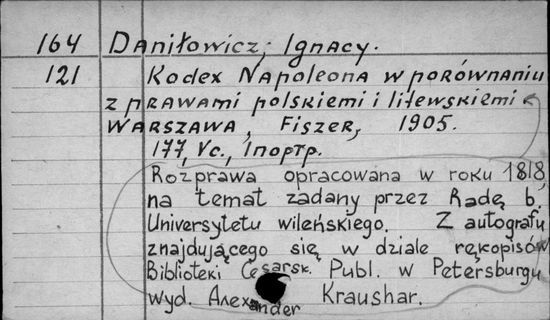 164 Daniłowicz, Ignacy.
121 Kodex Napoleona w porównaniu
z prawami polskiemi i litewskiemi
Warszawa, Fiszer, 1905.
177, Vc., 1портр.
Rozprawa opracowana w roku 1818,
na temat zadany przez Radę b.
Uniwersytetu wileńskiego. Z autografu
znajdującego się w dziale rękopisów
Biblioteki Cesarsk. Publ. w Petersburgu
wyd. Alexander Kraushar.